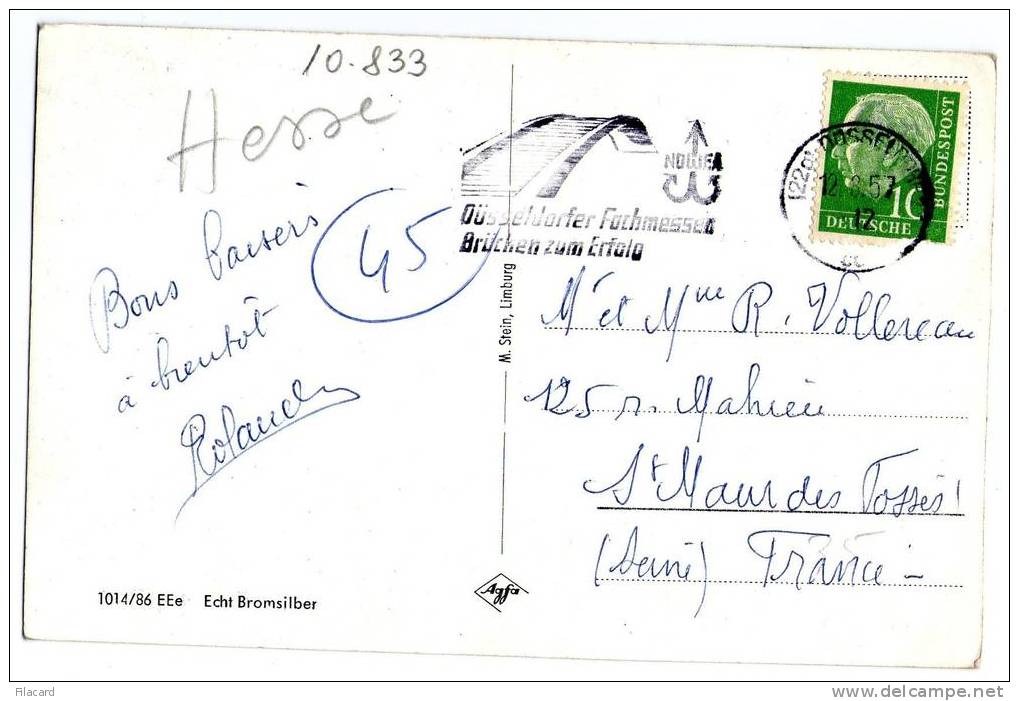 10.833
Hesse
Bons baisers
à bientôt
Roland
45
NOWEA
Düsseldorfer Fachmessen
Brücken zum Erfolg
(22a) DÜSSELDORF
57
12
cc
10
DEUTSCHE
BUNDESPOST
M. Stein, Limburg
Mr et Mme R. Vollereau
125 r. Mahieu
St Maur des Fossés
(Seine) France
Agfa
1014/86 EEe Echt Bromsilber
Filacard
www.delcampe.net